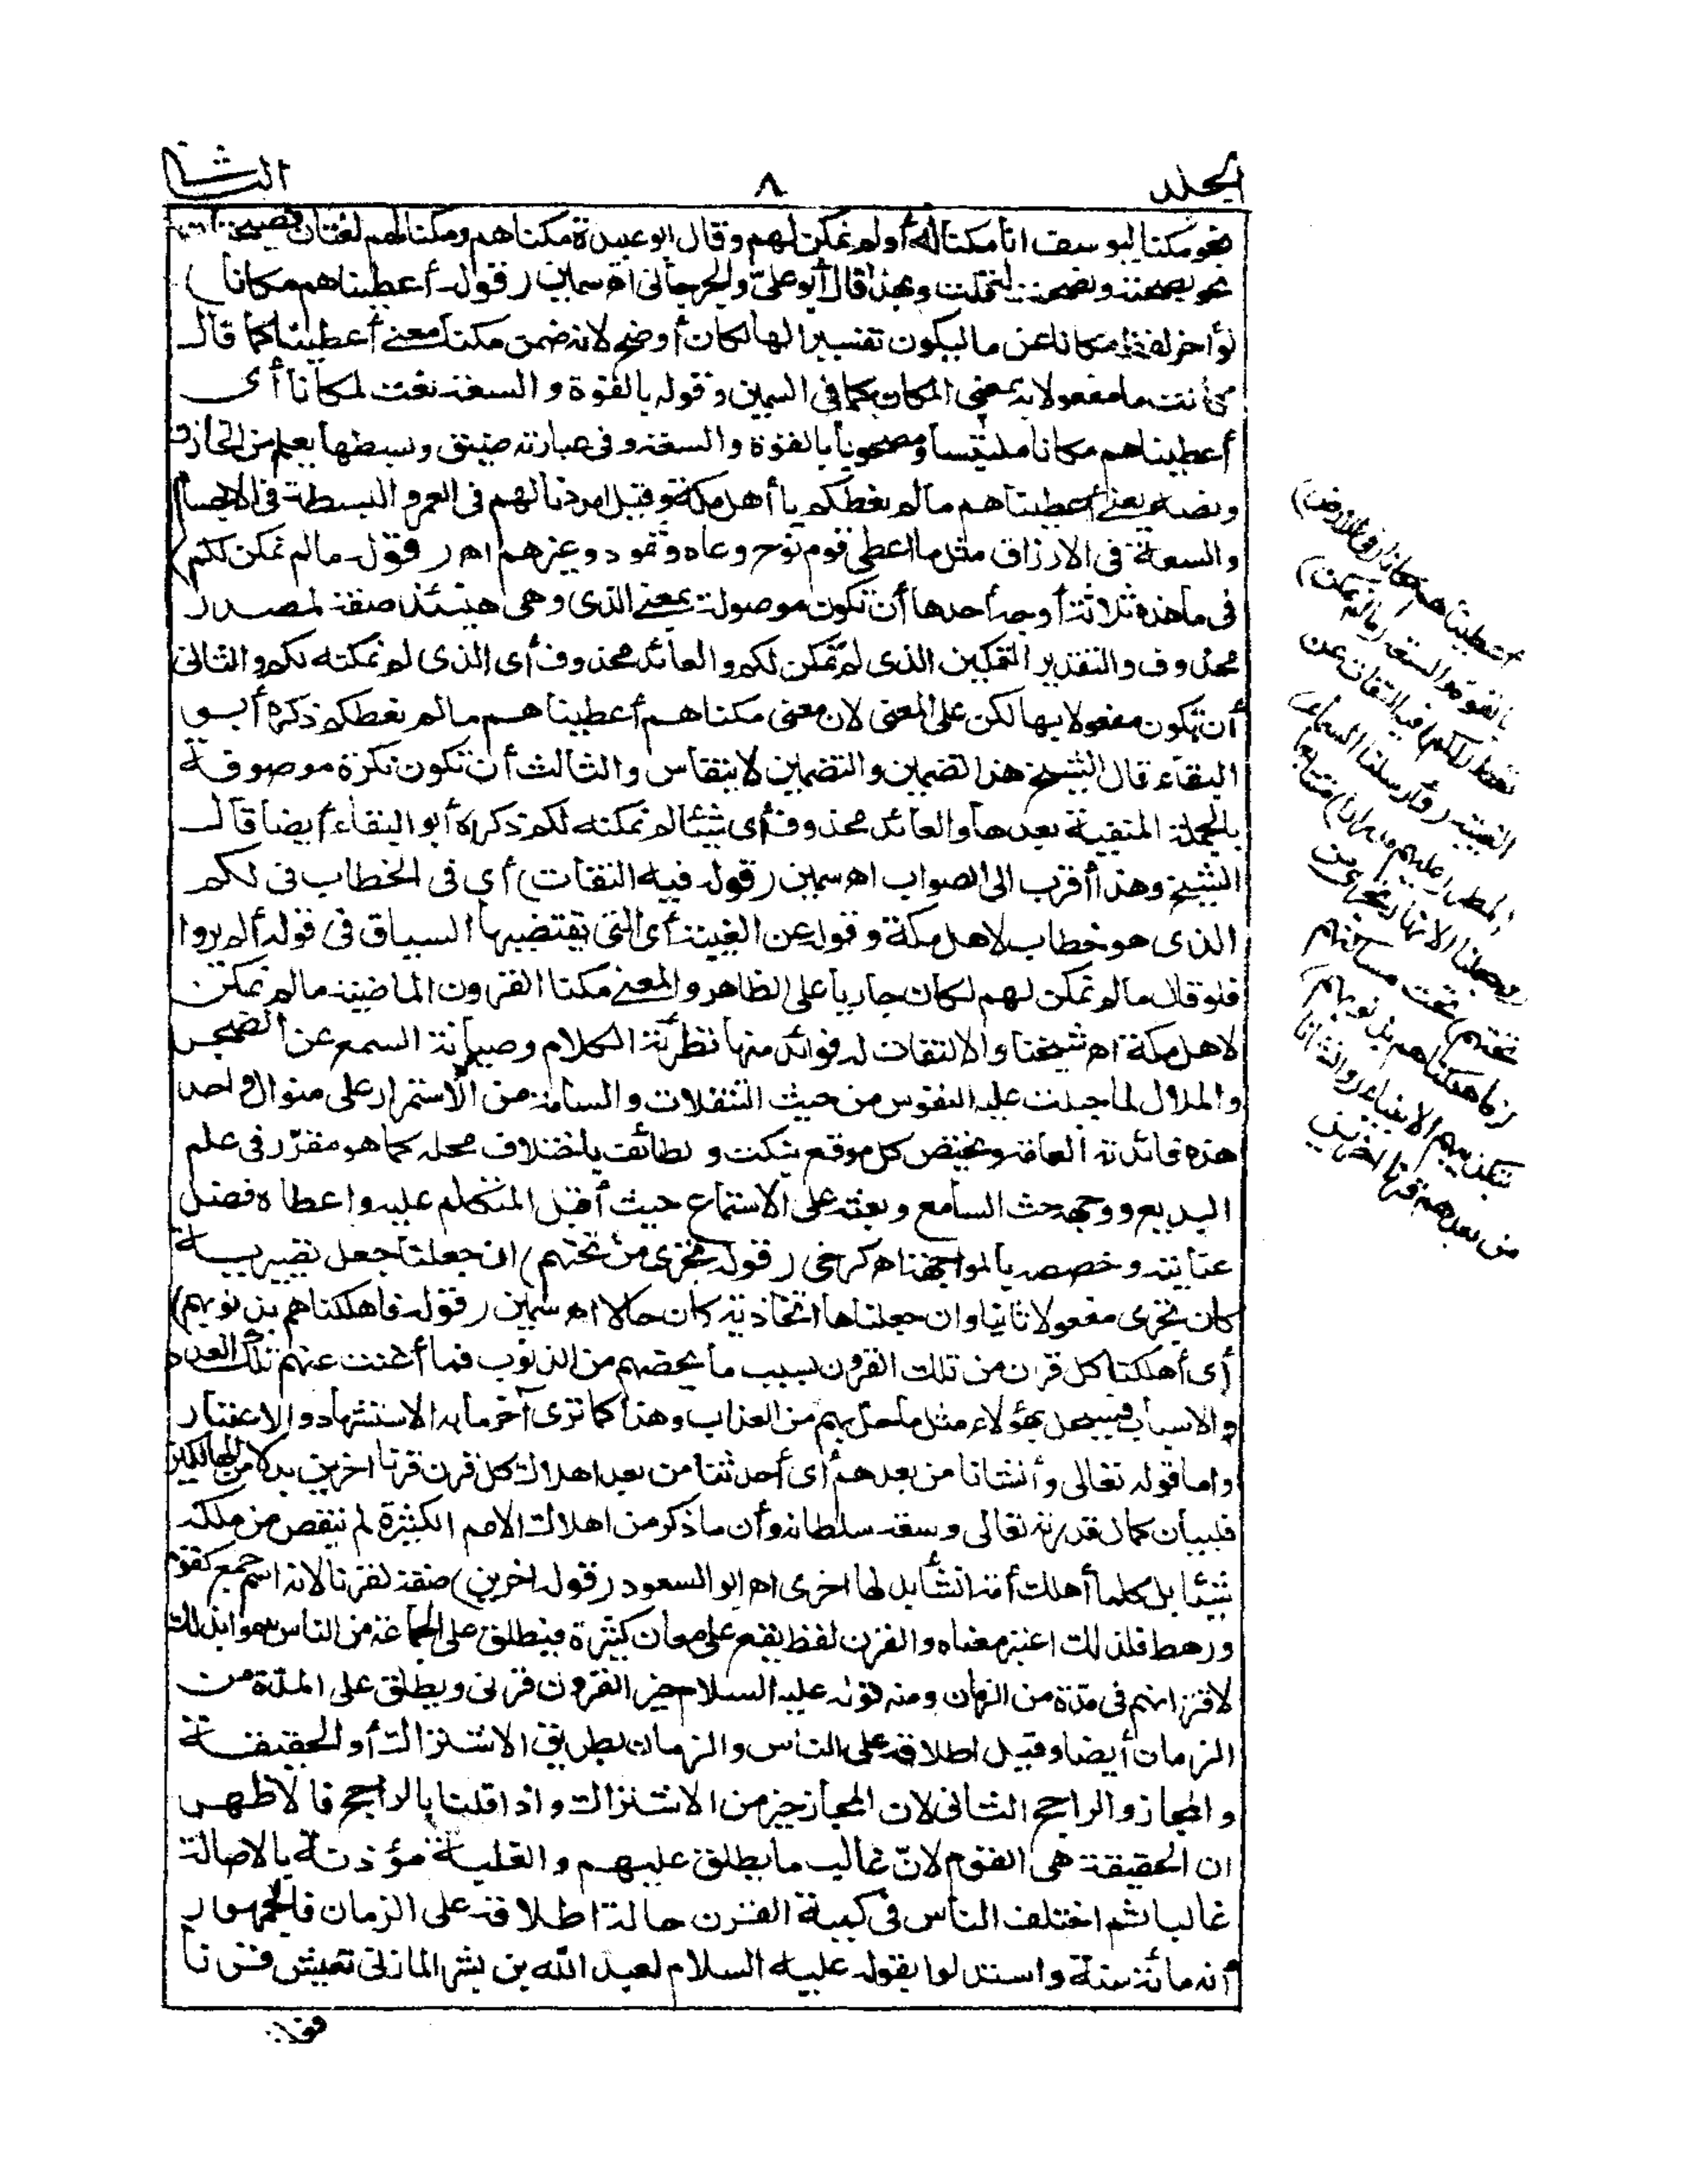 الجلد
٨
الثا
نحو مكنا ليوسف انا مكنا له أو لم نمكن لهم وقال ابو عبيدة مكناهم ومكنا لهم لغتان فصيحتان
نحو نصحته ونصحت له قلت وبهذا قال أبو علي والجرجاني اه سمين (قوله أعطيناهم مكانا)
لو أخر لفظ مكانا عن ما ليكون تفسيرا لها لكان أوضح لانه ضمن مكنا معنى أعطينا كما قال
كانت ما مفعولا به بمعنى المكان كما في السمين وقوله بالقوة والسعة نعت لمكانا أي
أعطيناهم مكانا ملتبسا ومصحوبا بالقوة والسعة وفي عبارته ضيق وبسطها يعلم من الخازن
ونصه يعني أعطيناهم ما لم نعطكم يا أهل مكة وقيل امددنا لهم في العمر والبسطة في الاجسام
والسعة في الارزاق مثل ما اعطى قوم نوح وعاد وثمود وغيرهم اه (قوله ما لم نمكن لكم)
في ما هذه ثلاثة أوجه أحدها أن تكون موصولة بمعنى الذي وهي حينئذ صفة لمصدر
محذوف والتقدير التمكين الذي لم نمكن لكم والعائد محذوف أي الذي لم نمكنه لكم والثاني
أن تكون مفعولا بها لكن على المعنى لان معنى مكناهم أعطيناهم ما لم نعطكم ذكره أبو
البقاء قال الشيخ هذا تضمين والتضمين لا ينقاس والثالث أن تكون نكرة موصوفة
بالجملة المنفية بعدها والعائد محذوف أي شيئا لم نمكنه لكم ذكره أبو البقاء أيضا قال
الشيخ وهذا أقرب الى الصواب اه سمين (قوله فيه التفات) أي في الخطاب في لكم
الذي هو خطاب لاهل مكة وقوله عن الغيبة أي التي يقتضيها السياق في قوله ألم يروا
فلو قال ما لم نمكن لهم لكان جاريا على الظاهر والمعنى مكنا القرون الماضية ما لم نمكن
لاهل مكة اه شيخنا والالتفات له فوائد منها تطرية الكلام وصيانة السمع عن الضجر
والملال لما جبلت عليه النفوس من حيث التنقلات والسآمة من الاستمرار على منوال واحد
هذه فائدته العامة ويختص كل موقع بنكت ولطائف باختلاف محله كما هو مقرر في علم
البديع ووجهه حث السامع وبعثه على الاستماع حيث أقبل المتكلم عليه واعطاه فضل
عنايته وخصصه بالمواجهة اه كرخي (قوله تجري من تحتهم) ان جعلنا جعل تصييرية
كان تجري مفعولا ثانيا وان جعلناها اتخاذية كان حالا اه سمين (قوله فاهلكناهم بذنوبهم)
أي أهلكنا كل قرن من تلك القرون بسبب ما يخصهم من الذنوب فما أغنت عنهم تلك العدد
والاسباب فسيحل بهؤلاء مثل ما حل بهم من العذاب وهذا كما ترى آخر ما به الاستشهاد والاعتبار
واما قوله تعالى وأنشأنا من بعدهم أي أحدثنا من بعد اهلاك كل قرن قرنا اخرين بدلا من الهالكين
فلبيان كمال قدرته تعالى وسعة سلطانه وأن ما ذكر من اهلاك الامم الكثيرة لم ينقص من ملكه
شيئا بل كلما أهلك أمة انشأ بدلها اخرى اه ابو السعود (قوله اخرين) صفة لقرنا لانه اسم جمع كقوم
ورهط فلذلك اعتبر معناه والقرن لفظ يقع على معان كثيرة فيطلق على الجماعة من الناس سموا بذلك
لاقترانهم في مدة من الزمان ومنه قوله عليه السلام خير القرون قرني ويطلق على المدة من
الزمان أيضا وقيل اطلاقه على الناس والزمان بطريق الاشتراك أو الحقيقة
والمجاز والراجح الثاني لان المجاز خير من الاشتراك واذا قلنا بالراجح فالاظهر
ان الحقيقة هي القوم لان غالب ما يطلق عليهم والغلبة مؤذنة بالاصالة
غالبا ثم اختلف الناس في كمية القرن حالة اطلاقه على الزمان فالجمهور
أنه مائة سنة واستدلوا بقوله عليه السلام لعبد الله بن بشر المازني تعيش قرنا
أعطيناهم مكانا (في الارض)
بالقوة والسعة (ما لم نمكن)
نعط (لكم) فيه التفات عن
الغيبة (وأرسلنا السماء)
المطر (عليهم مدرارا) متتابعا
(وجعلنا الانهار تجري من
تحتهم) تحت مساكنهم
(فاهلكناهم بذنوبهم)
بتكذيبهم الانبياء (وأنشأنا
من بعدهم قرنا اخرين